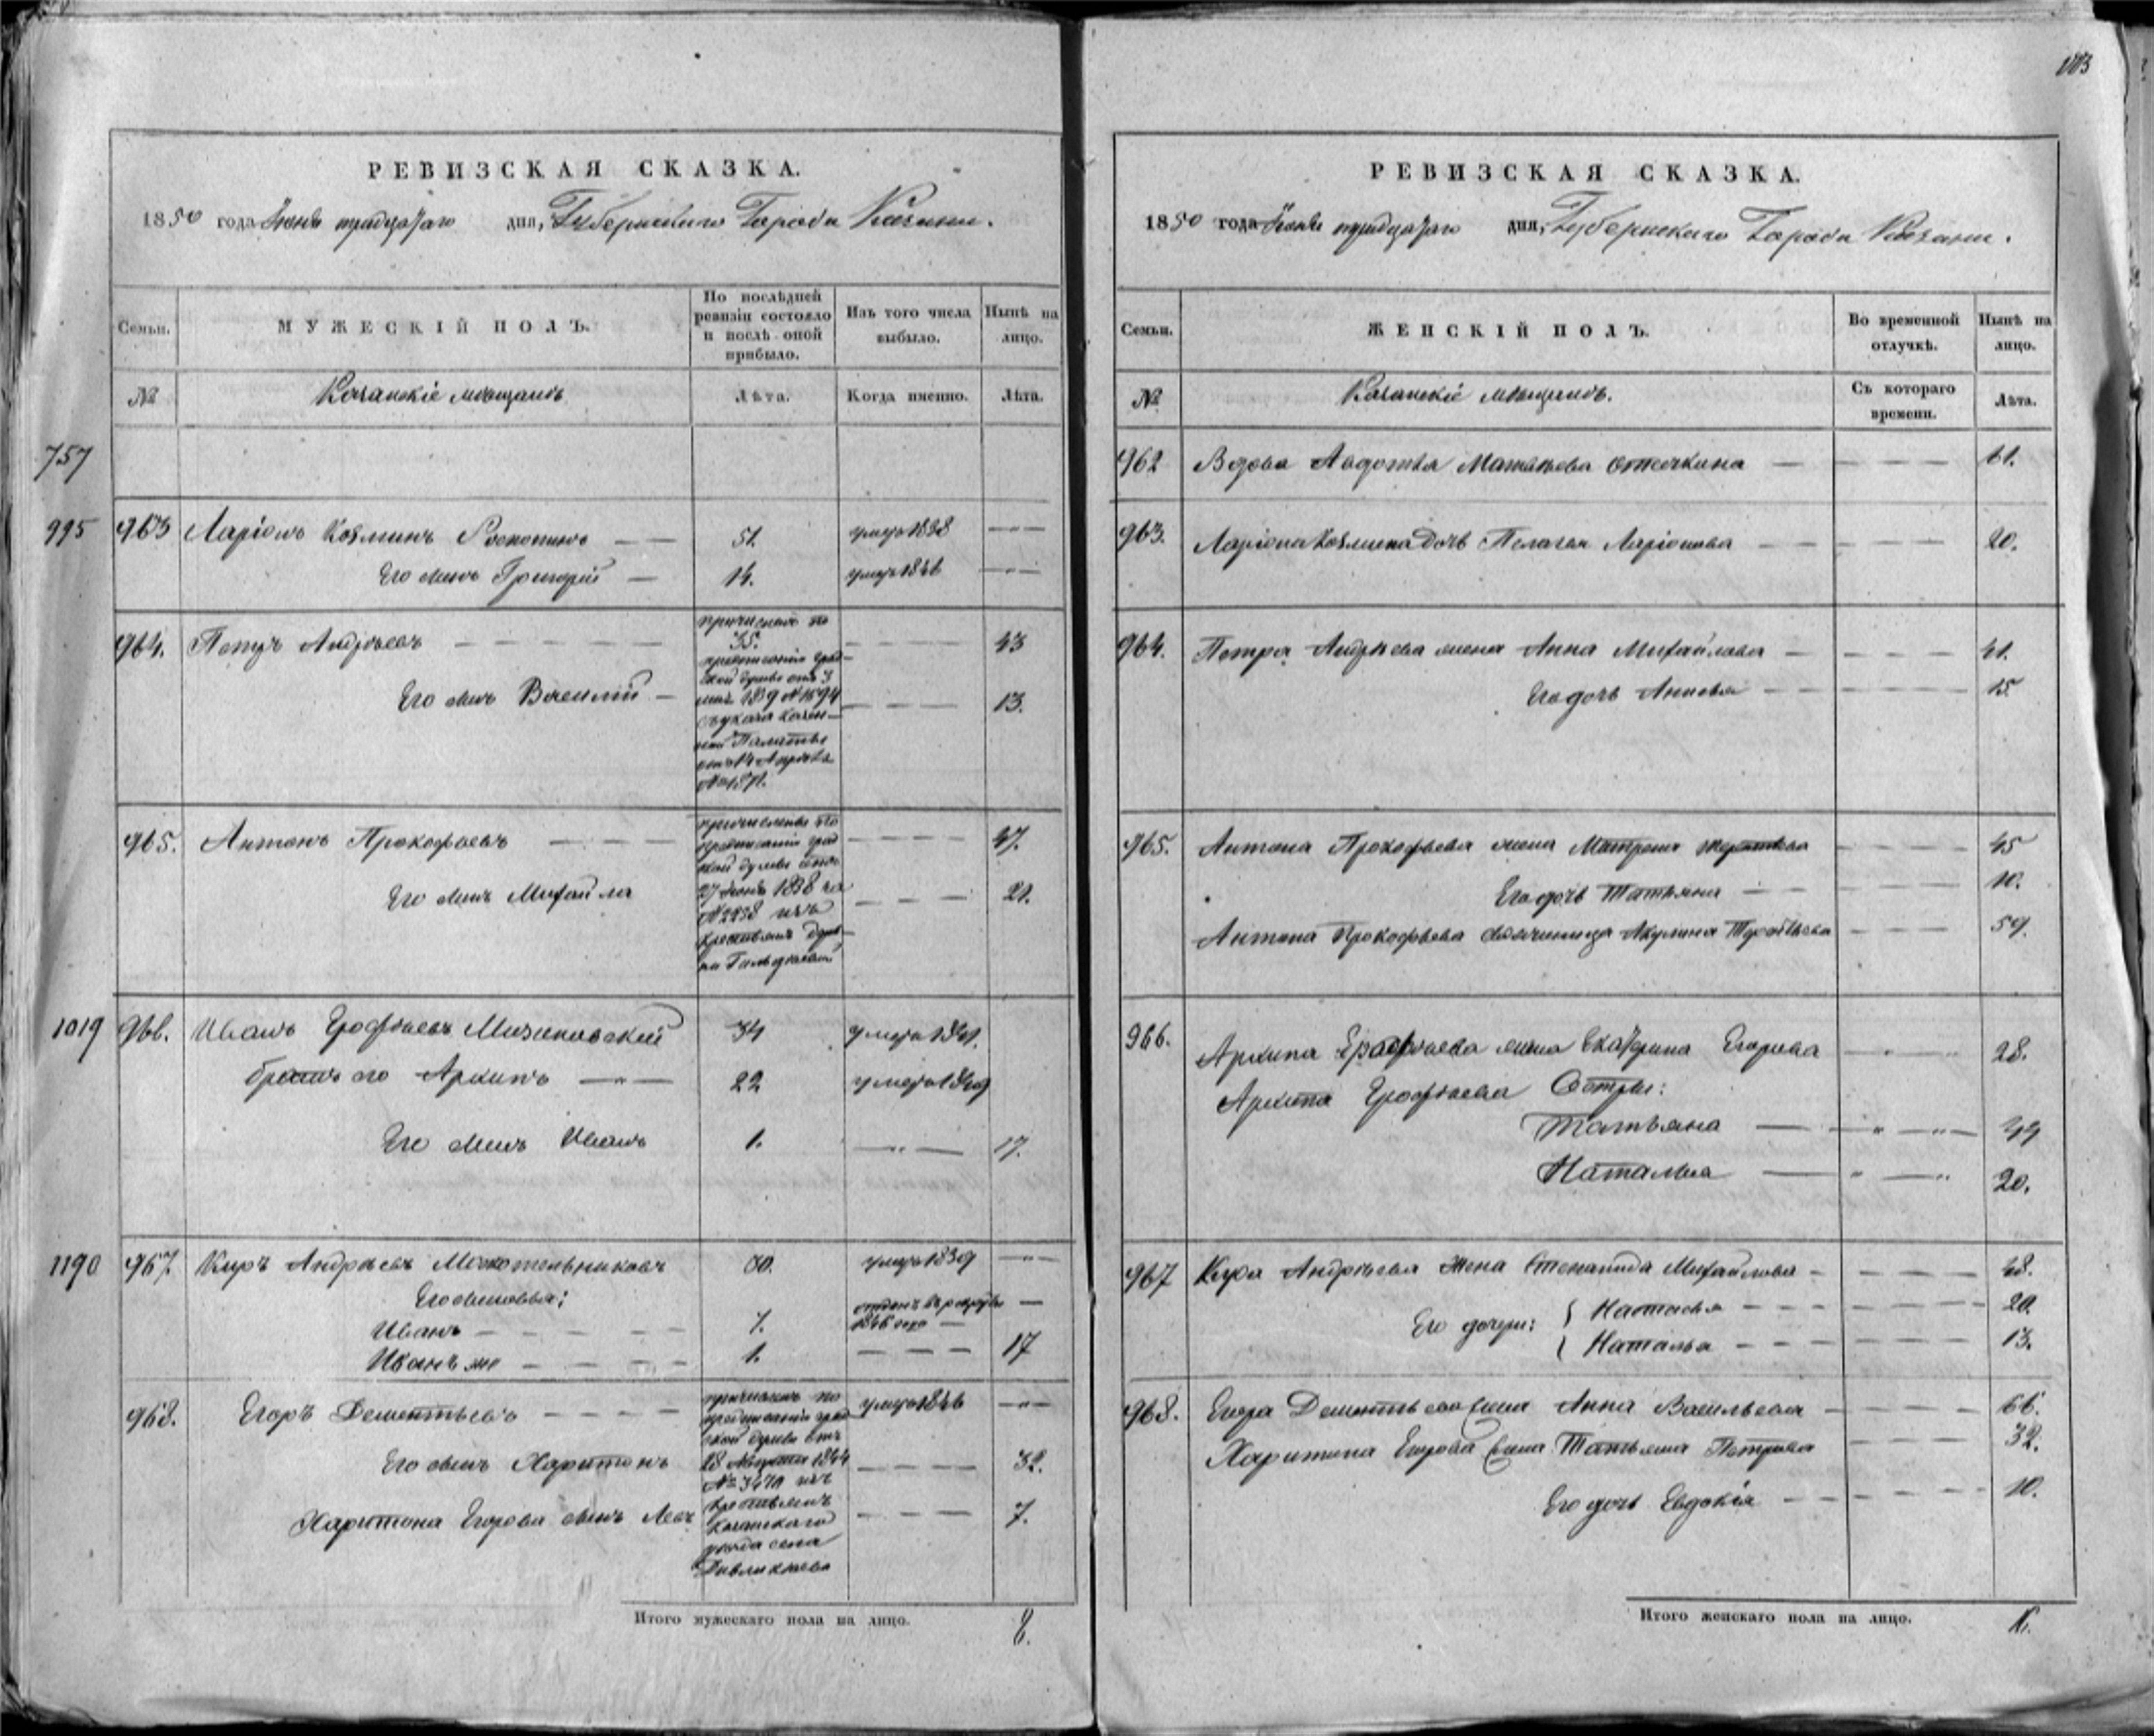 РЕВИЗСКАЯ СКАЗКА.
1850 года Іюня тридцатаго дня, Губернскаго Города Казани.
Семьи.
МУЖЕСКІЙ ПОЛЪ.
По послѣдней ревизіи состояло и послѣ оной прибыло.
Изъ того числа выбыло.
Нынѣ на лицо.
№
Казанскіе мѣщанѣ
Лѣта.
Когда именно.
Лѣта.
757
995 963 Ларіонъ Козминъ 51. умеръ 1838
Его сынъ Григорій 14. умеръ 1846
964. Петръ Андрѣевъ 43
причисленъ по
35.
предписанію град-
ской думы отъ 3
1839 № 1594
указа казен-
ной Палаты
Его сынъ Василій 13.
965. Антонъ Прокофьевъ 47.
причислены по
предписанію град
ской думы отъ
27 1838 за
№ 2238 изъ
крестьянъ дерев-
ни
Его сынъ Михайла 21.
1019 966. Иванъ Ерофѣевъ 34 умеръ 1841.
братъ его Архипъ 22 умеръ 1849
Его сынъ Иванъ 1. 17.
1190 967 Киръ Андрѣевъ 30. умеръ 1839
Его сыновья:
Иванъ 7. отданъ въ рекруты
1846 года
Иванъ же 1. 17
968. Егоръ Дементьевъ умеръ 1846
причислены по
предписанію град
ской думы отъ
18 Августа 1844
№ 3470 изъ
крестьянъ
Казанскаго
уѣзда села
Его сынъ Харитонъ 32.
Харитона Егорова сынъ Левъ 7.
Итого мужескаго пола на лицо. 8.
РЕВИЗСКАЯ СКАЗКА.
1850 года Іюня тридцатаго дня, Губернскаго Города Казани.
Семьи.
ЖЕНСКІЙ ПОЛЪ.
Во временной отлучкѣ.
Нынѣ на лицо.
№
Казанскіе мѣщанѣ.
Съ котораго времени.
Лѣта.
962 Вдова Авдотья Матвѣева 61.
963. Ларіона Козмина дочь Пелагея Ларіонова 20.
964. Петра Андрѣева жена Анна Михайлова 41.
Его дочь Анисья 15
965. Антона Прокофьева жена Матрена 45
Его дочь Татьяна 10.
Антона Прокофьева Акулина 59.
966. Архипа Ерофѣева жена Екатерина Егорова 28.
Архипа Ерофѣева Сестры:
Татьяна 44
Наталья 20.
967 Кира Андрѣева жена Степанида Михайлова 48.
Его дочери: Настасья 20.
Наталья 13.
968. Егора Дементьева жена Анна Васильева 66.
Харитона Егорова жена Татьяна Петрова 32.
Его дочь Евдокія 10.
Итого женскаго пола на лицо.